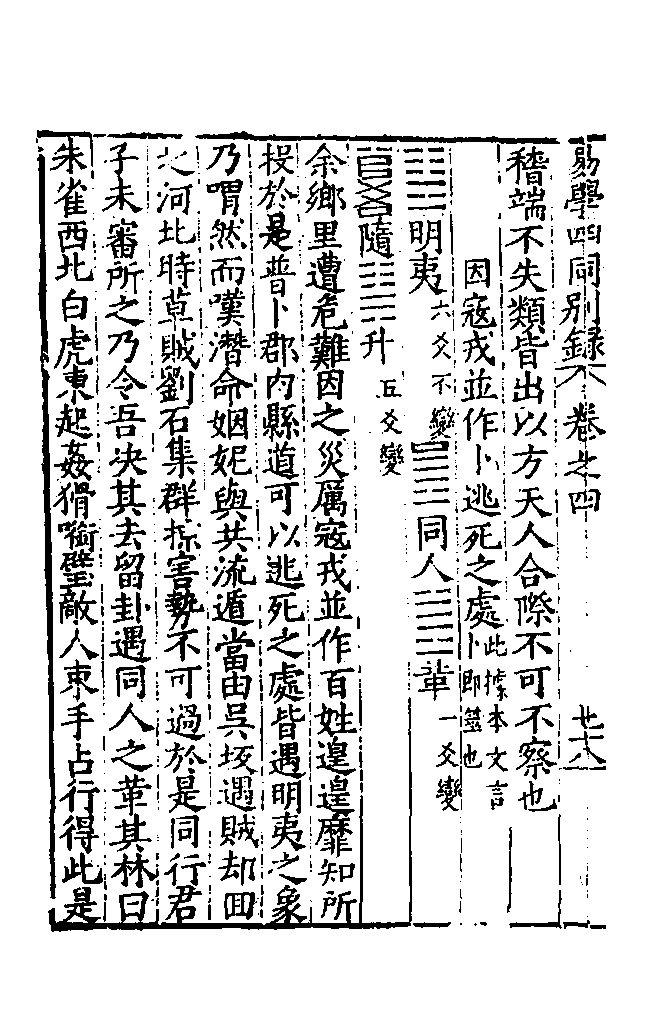 易學四同別錄 卷之四 廿六
稽端不失類皆出以方天人合際不可不察也
因寇戎並作卜逃死之處此據本文言卜即筮也
䷣明夷六爻不變䷌同人䷰革一爻變
䷐隨䷭升五爻變
余鄉里遭危難因之災厲寇戎並作百姓遑遑靡知所
投於是普卜郡內縣道可以逃死之處皆遇明夷之象
乃喟然而嘆潛命姻妮與共流遁當由吳坂遇賊却回
之河北時草賊劉石集群掠害勢不可過於是同行君
子未審所之乃令吾決其去留卦遇同人之革其林曰
朱雀西北白虎東起姦猾銜璧敵人束手占行得此是